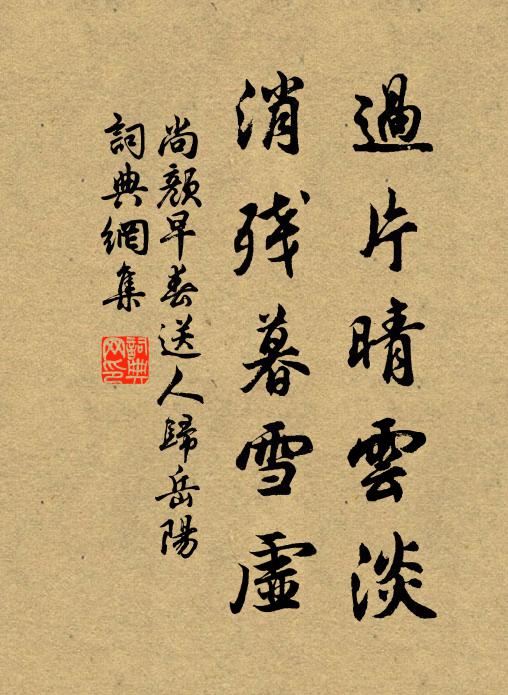 過片晴雲淡
消残暮雪虛
尚顏早春送人歸岳陽
詞典網集
詞典网印